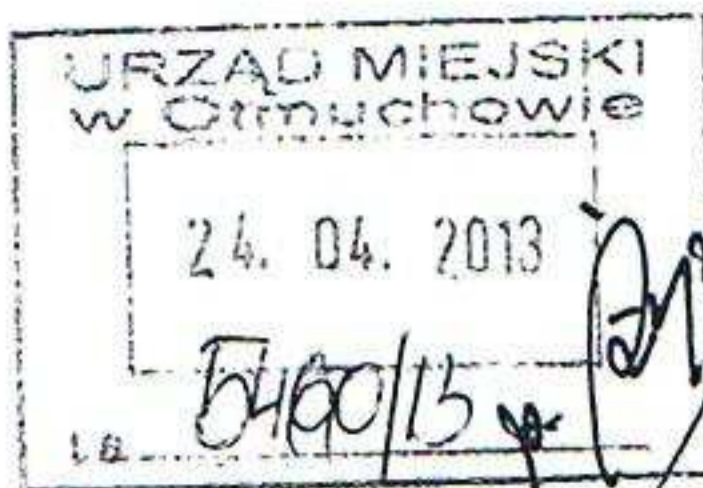 URZĄD MIEJSKI
w Otmuchowie
24. 04. 2013
5460/13